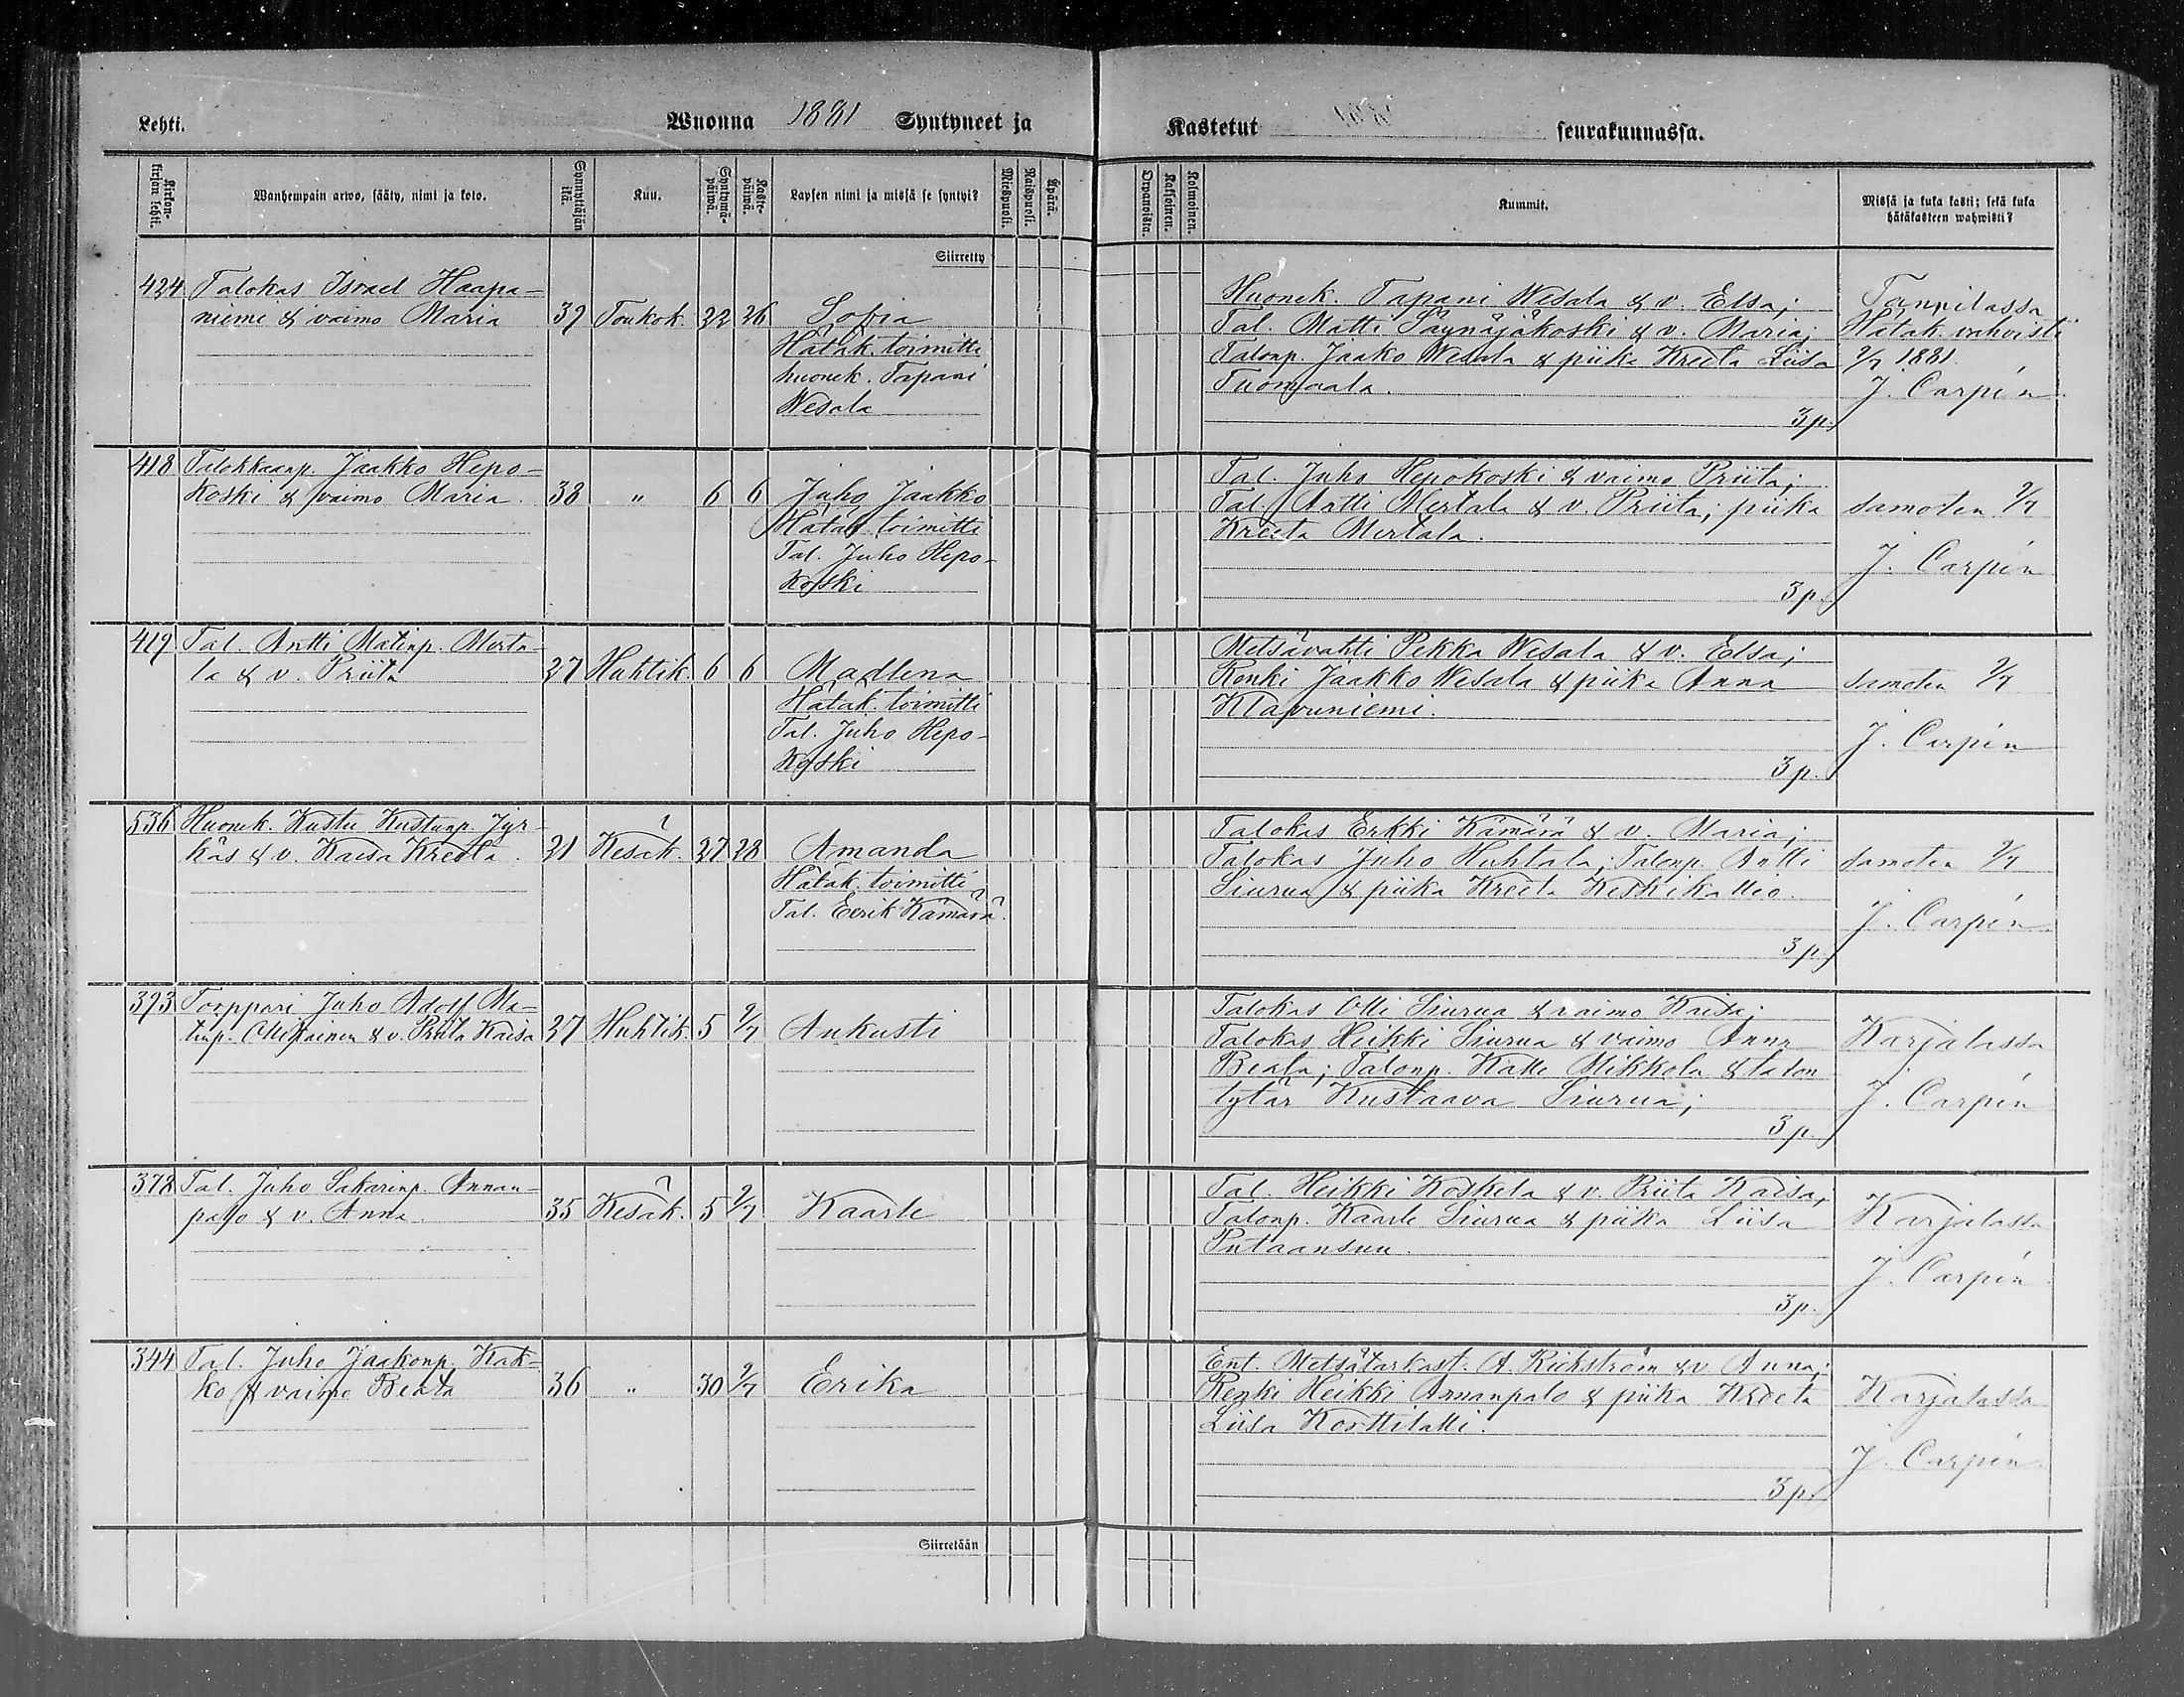 Lehti. Wuonna 1881 Syntyneet ja
Kastetut seurakunnassa.
Kirkon-kirjan lehti. Wanhempain arwo, sääty, nimi ja koto. Synnyttäjän ikä. Kuu. Syntymä-päiwä. Kaste-päiwä. Lapsen nimi ja missä se syntyi? Miespuoli. Naispuoli. Äpärä.
Orpanoista. Kaksoinen. Kolmoinen. Kummit. Missä ja kuka kasti; sekä kuka hätäkasteen wahwisti?
Siirretty
424 Talokas Israel Haapa-
niemi & vaimo Maria 39 Toukok. 22 26 Sofia
Hätäk. toimitti
huonek. Tapani
Wesala
Huonek. Tapani Wesala & v. Elsa;
Tal. Matti Säynäjäkoski & v. Maria;
Talonp. Jaako Wesala & piika Kreeta Liisa
Tuomaala.
3 p.
Hätäk. vahvisti
2/7 1881.
J. Carpén
418 Talokkaanp. Jaakko Hepo-
koski & vaimo Maria. 38 " 6 6 Juho Jaakko
Hätäk. toimitti
Tal. Juho Hepo-
koski
Tal. Juho Hepokoski & vaimo Priita;
Tal. Antti Mertala & v. Priita; piika
Kreeta Mertala.
3 p.
samoten 2/7
J. Carpén
419 Tal. Antti Matinp. Merta-
la & v. Priita 27 Huhtik. 6 6 Madlena
Hätäk. toimitti
Tal. Juho Hepo-
koski
Metsävahti Pekka Wesala & v. Elsa;
Renki Jaakko Wesala & piika Anna
Klapuniemi.
3 p.
samoten 2/7
J. Carpén
536 Huonek. Kustu Kustunp. Jyr-
käs & v. Kaisa Kreeta. 21 Kesäk. 27 28 Amanda
Hätäk. toimitti
Tal. Eerik Kämärä.
Talokas Erkki Kämärä & v. Maria;
Talokas Juho Huhtala; Talonp. Antti
Siurua & piika Kreeta Keskikallio.
3 p.
samoten 2/7
J. Carpén
393 Torppari Juho Adolf Ma-
tinp. & v. Priita Kaisa 27 Huhtik. 5 2/7 Aukusti
Talokas Olli Siurua & vaimo Kaisa;
Talokas Heikki Siurua & vaimo Anna
Beata; Talonp. Kalle Mikkola & talon
tytär Kustaava Siurua;
3 p.
Karjalassa
J. Carpén
378 Tal. Juho Sakarinp. Annan-
palo & v. Anna. 35 Kesäk. 5 2/7 Kaarle
Tal. Heikki Koskela & v. Priita Kaisa;
Talonp. Kaarle Siurua & piika Liisa
Putaansuu.
3 p.
Karjalassa
J. Carpén
344 Tal. Juho Jaakonp. Kak-
ko & vaimo Beata 36 " 30 2/7 Erika
Ent. Metsätarkast. A. Rickström & v. Anna;
Renki Heikki Annanpalo & piika Kreeta
Liisa Korttilatti.
3 p.
Karjalassa
J. Carpén
Siirretään